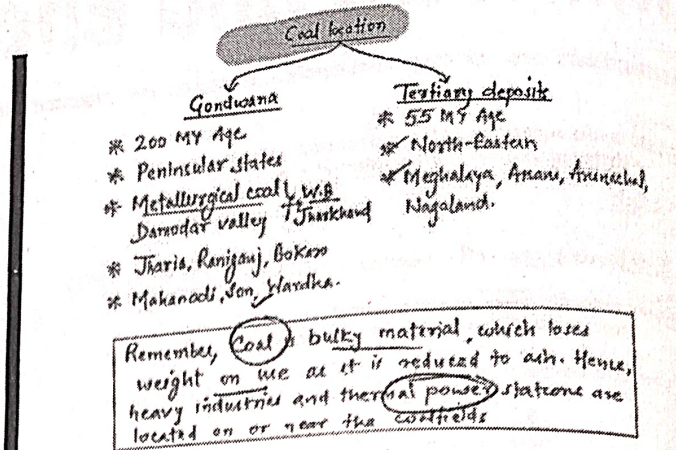 Coal location
Gondwana
* 200 MY Age
* Peninsular states
* Metallurgical coal
Damodar valley W.B Jharkhand
* Jharia, Raniganj, Bokaro
* Mahanadi, Son, Wardha.
Tertiary deposite
* 55 MY Age
* North-Eastern
* Meghalaya, Assam, Arunachal,
Nagaland.
Remember, Coal is bulky material, which loses
weight on use as it is reduced to ash. Hence,
heavy industries and thermal power stations are
located on or near the coalfields